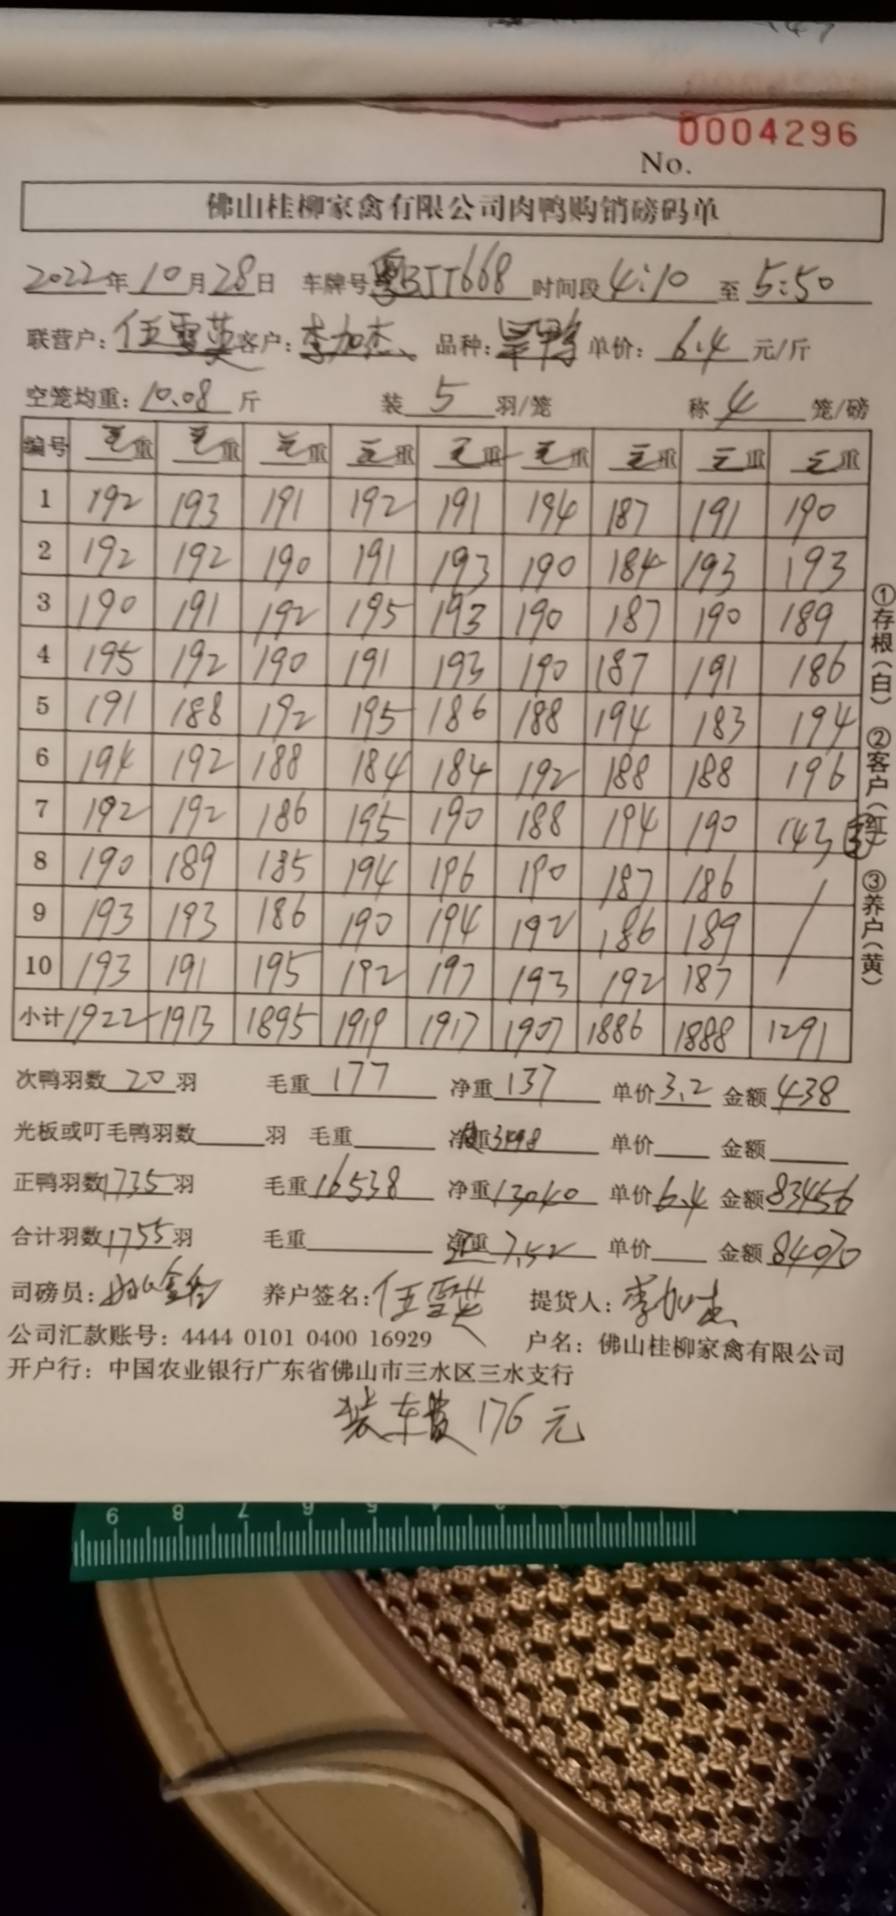 0004296
No.
佛山桂柳家禽有限公司肉鸭购销磅码单
2022年10月28日 车牌号粤BJJ668 时间段4:10至5:50
联营户:伍雪英 客户:李加杰 品种:旱鸭 单价:6.4元/斤
空笼均重:10.08斤 装5羽/笼 称4笼/磅
编号 毛重 毛重 毛重 毛重 毛重 毛重 毛重 毛重 毛重
1 192 193 191 192 191 194 187 191 190
2 192 192 190 191 193 190 184 193 193
3 190 191 192 195 193 190 187 190 189
4 195 192 190 191 193 190 187 191 186
5 191 188 192 195 186 188 194 183 194
6 194 192 188 184 184 192 188 188 196
7 192 192 186 195 190 188 194 190 143
8 190 189 185 194 196 190 187 186
9 193 193 186 190 194 192 186 189
10 193 191 195 192 197 193 192 187
小计 1922 1913 1895 1919 1917 1907 1886 1888 1291
次鸭羽数20羽 毛重177 净重137 单价3.2 金额438
光板或叮毛鸭羽数 羽 毛重 净重3498 单价 金额
正鸭羽数1735羽 毛重16538 净重13040 单价6.4 金额83456
合计羽数1755羽 毛重 7.52 单价 金额84070
司磅员: 养户签名:伍雪英 提货人:李加杰
公司汇款账号:4444 0101 0400 16929 户名:佛山桂柳家禽有限公司
开户行:中国农业银行广东省佛山市三水区三水支行
装车费176元
①存根(白) ②客户(红) ③养户(黄)
9 8 7 6 5 4